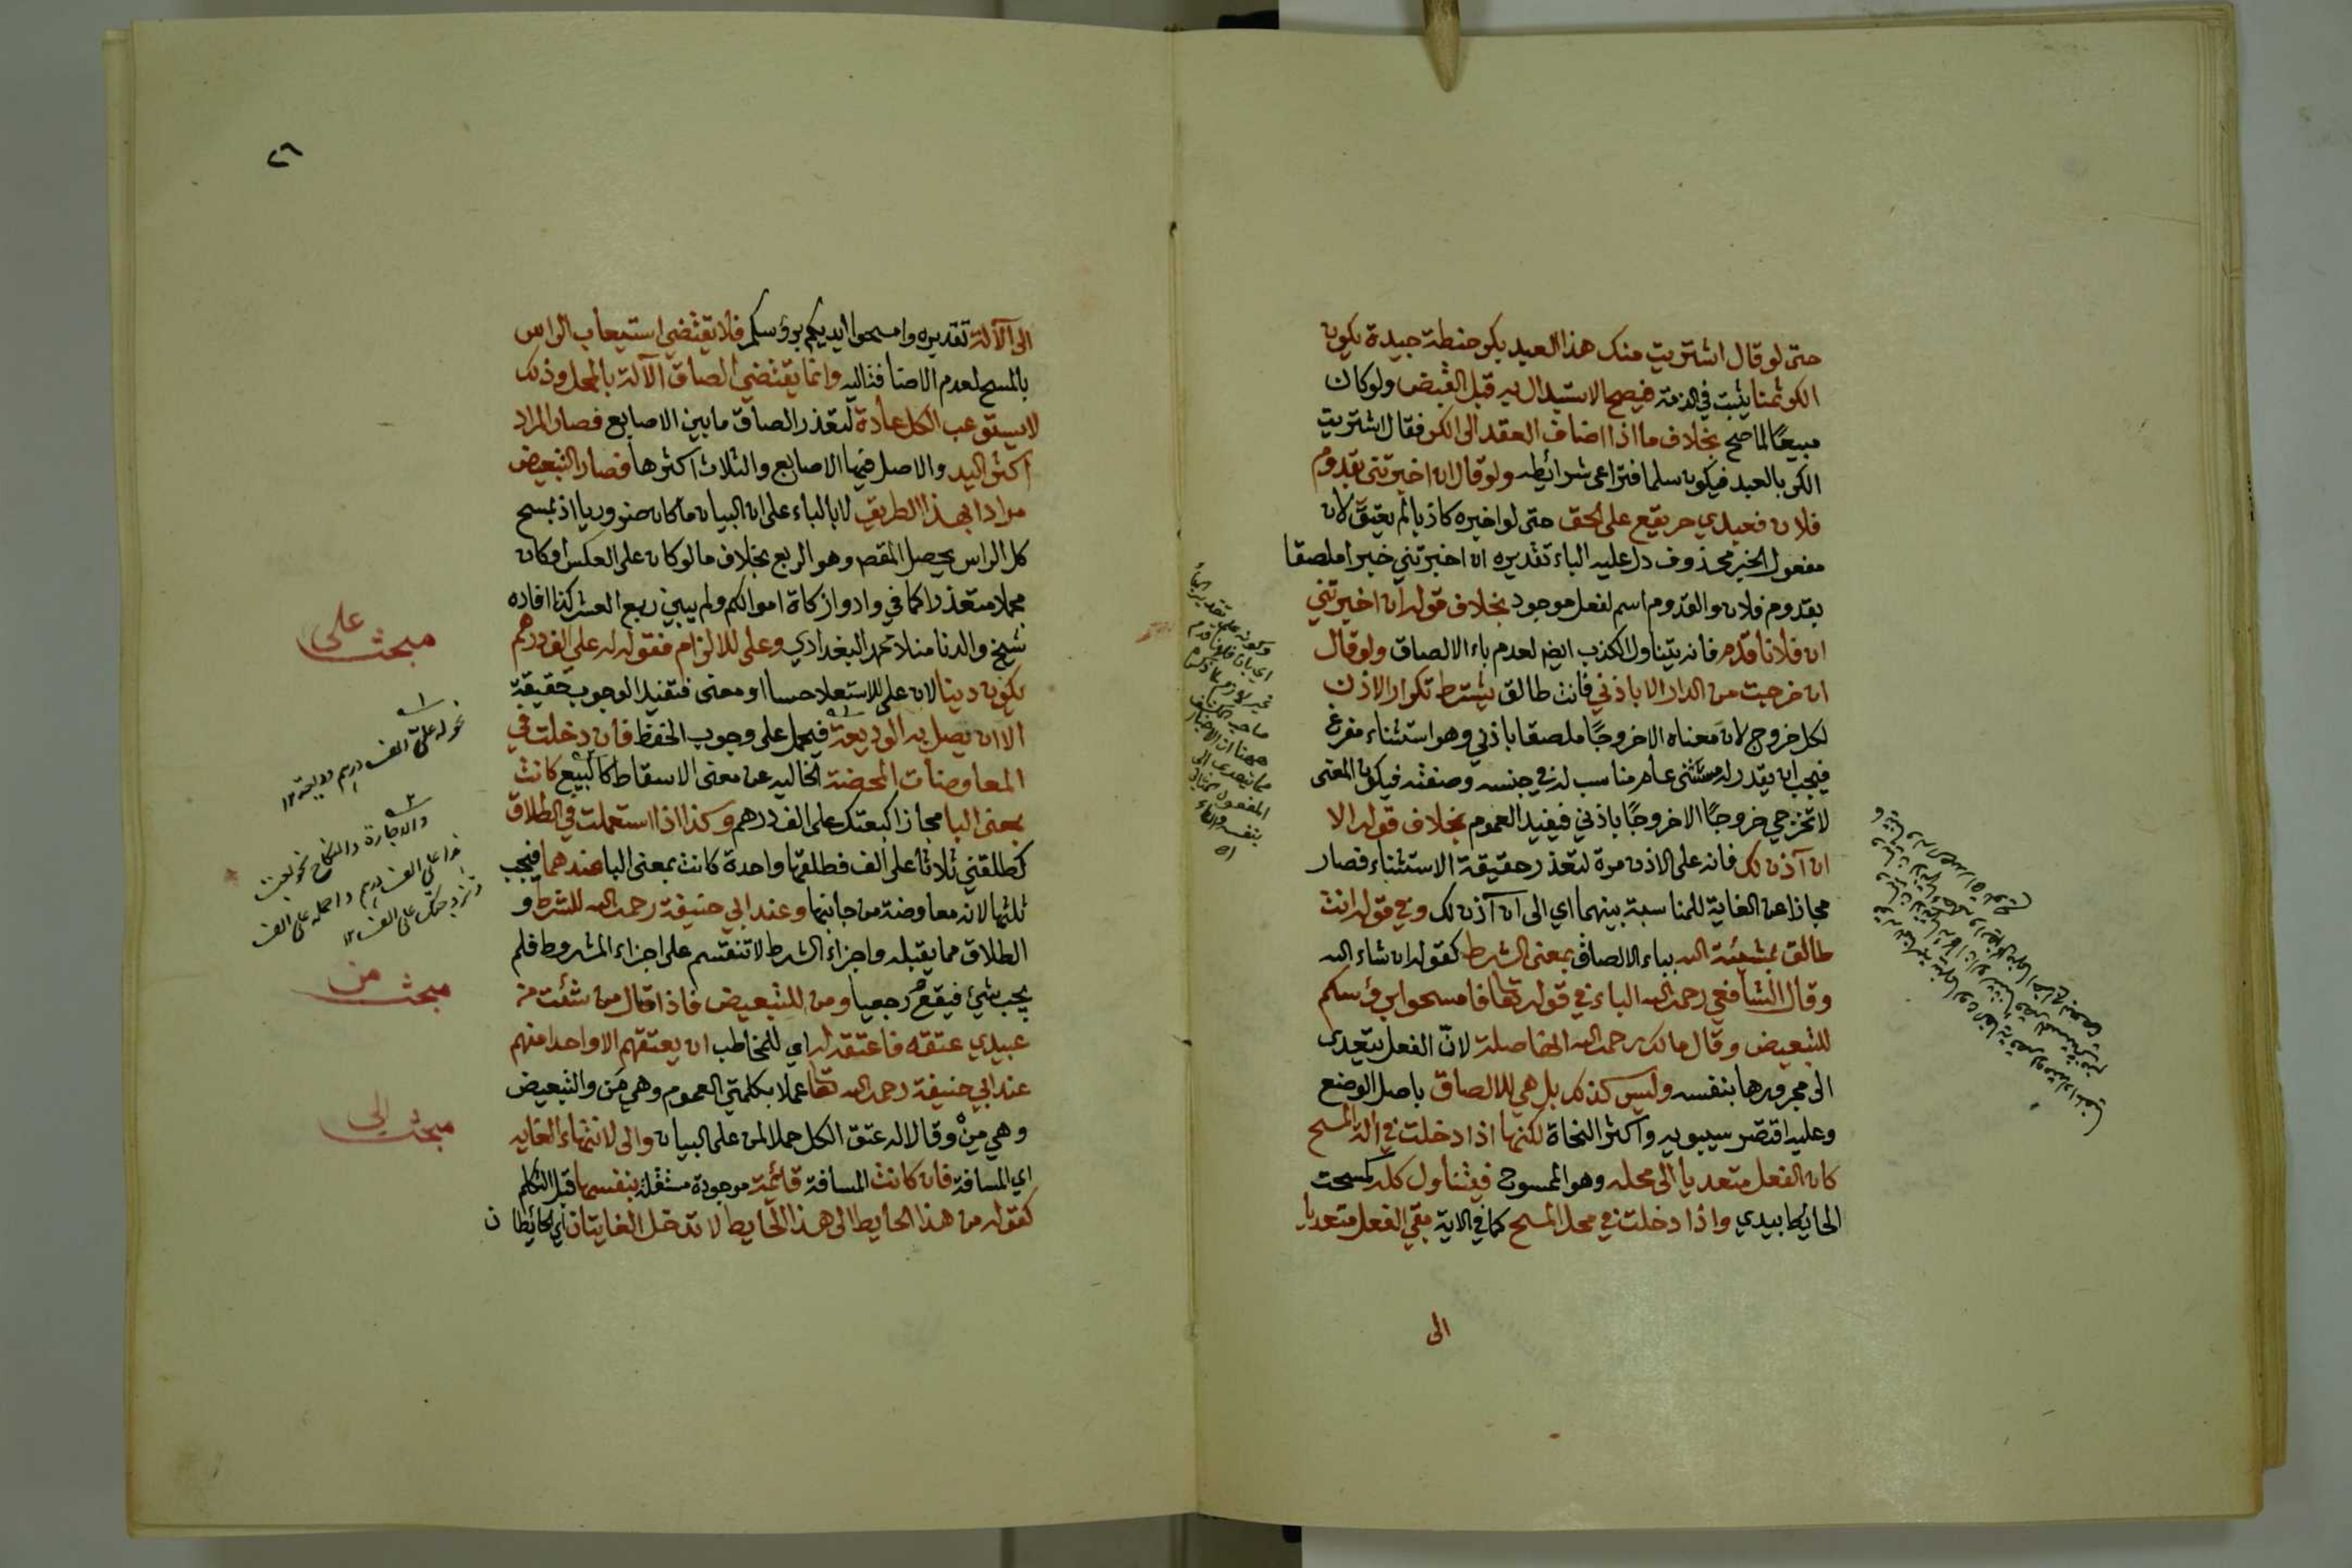 حتى لو قال اشتريت منك هذا العبد بكر حنطة جيدة يكون
الكر ثمنا يثبت في الذمة فيصح الاستبدال به قبل القبض ولو كان
مبيعًا لما صح بخلاف ما اذا اضاف العقد الى الكر فقال اشتريت
الكر بالعبد فيكون سلما فتراعى شرائطه ولو قال ان اخبرتني بقدوم
فلان فعبدي حر يقع على الحق حتى لو اخبره كاذبا لم يعتق لان
مفعول الخبر محذوف دل عليه الباء تقديره ان اخبرتني خبرا ملصقا
بقدوم فلان والقدوم اسم لفعل موجود بخلاف قوله ان اخبرتني
ان فلانا قدم فانه يتناول الكذب ايضم لعدم باء الالصاق ولو قال
ان خرجت من الدار الا باذني فانت طالق يشترط تكرار الاذن
لكل خروج لان معناه الا خروجًا ملصقا باذني وهو استثناء مفرغ
فيجب ان يقدر له مستثنى عام مناسب له في جنسه وصفته فيكون المعنى
لا تخرجي خروجًا الا خروجًا باذني فيفيد العموم بخلاف قوله الا
ان آذن لك فانه على الاذن مرة لتعذر حقيقة الاستثناء فصار
مجازا عن الغاية للمناسبة بينهما اي الى ان آذن لك وفي قوله انت
طالق بمشيئة الله بباء الالصاق بمعنى الشرط كقوله ان شاء الله
وقال الشافعي رحمه الله الباء في قوله تعا فامسحوا برؤسكم
للتبعيض وقال مالك رحمه الله انها صلة لانّ الفعل يتعدى
الى مجرورها بنفسه وليس كذلك بل هي للالصاق باصل الوضع
وعليه اقتصر سيبويه واكثر النحاة لكنها اذا دخلت في آلة المسح
كان الفعل متعديا الى محله وهو الممسوح فيتناول كله كمسحت
الحائط بيدي واذا دخلت في محل المسح كما في الاية بقي الفعل متعديا
الى
٢٦
الى الآلة تقديره وامسحوا ايديكم برؤسكم فلا يقتضي استيعاب الراس
بالمسح لعدم الاضافة اليه وانما يقتضي الصاق الآلة بالمحل وذلك
لا يستوعب الكل عادة لتعذر الصاق ما بين الاصابع فصار المراد
اكثر اليد والاصل فيها الاصابع والثلاث اكثرها فصار التبعيض
مرادا بهذا الطريق لا بالباء على ان البيان ما كان ضروريا اذ بمسح
كل الراس يحصل المقصم وهو الربع بخلاف ما لو كان على العكس او كان
مجملا متعذرا كما في وادوا زكاة اموالكم ولم يبين ربع العشر كذا افاده
شيخ والدنا منلا محمد البغدادي وعلى للالزام فقوله له علي الف درهم
يكون دينا لان على للاستعلا حسا او معنى فتفيد الوجوب حقيقة
الا ان يصل به الوديعة فيحمل على وجوب الحفظ فان دخلت في
المعاوضات المحضة الخاليه عن معنى الاسقاط كالبيع كانت
بمعنى البا مجازا كبعتك على الف درهم وكذا اذا استعملت في الطلاق
كطلقني ثلاثا على الف فطلقها واحدة كانت بمعنى البا عندهما فيجب
ثلثها لانه معاوضة من جانبها وعند ابي حنيفة رحمه الله للشرط و
الطلاق مما يقبله واجزاء الشرط لا تنقسم على اجزاء المشروط فلم
يجب شيئ فيقع رجعيا ومن للتبعيض فاذا قال من شئت من
عبيدي عتقه فاعتقه له اي للمخاطب ان يعتقهم الا واحدا منهم
عند ابي حنيفة رحمه الله تعا عملا بكلمتي العموم وهي مَن والتبعيض
وهي مِنْ وقالا له عتق الكل حملا لمن على البيان والى لانتهاء الغايه
اي المسافة فان كانت المسافة قائمة موجودة مستقلة بنفسها قبل التكلم
كقوله من هذا الحايط الى هذا الحايط لا تدخل الغايتان اي الحائطان
مبحث على
نحو له عليّ الف درهم وديعة ١٢
والاجارة والنكاح نحو بعت
هذا على الف درهم واحمله على الف
وتزوجتك على الف ١٢
مبحث من
مبحث الى